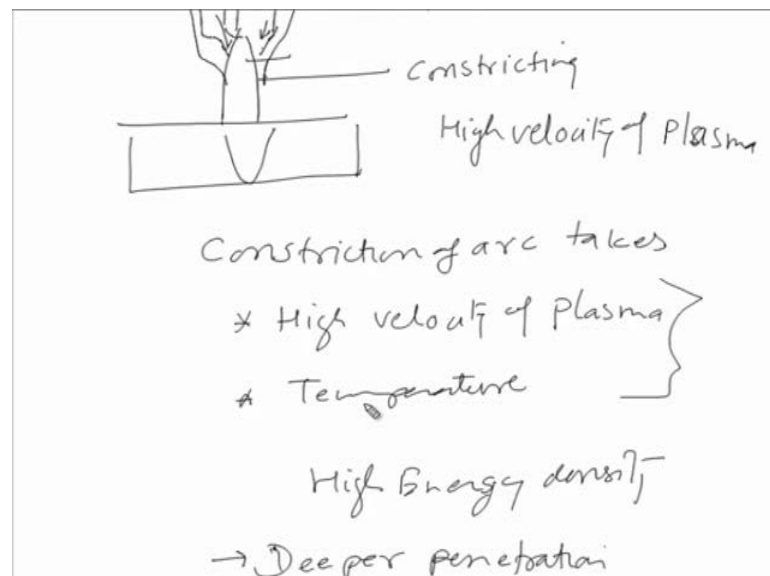 Constricting
High velocity of Plasma
Constriction of arc takes
* High velocity of plasma
* Temperature
High Energy density
→ Deeper penetration